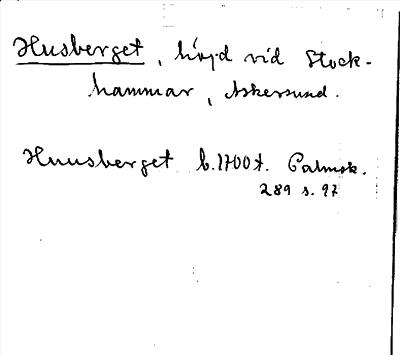 Husberget, höjd vid Stock-
hammar, Askersund.
Huusberget b. 1700t. Palmsk.
289 s. 97